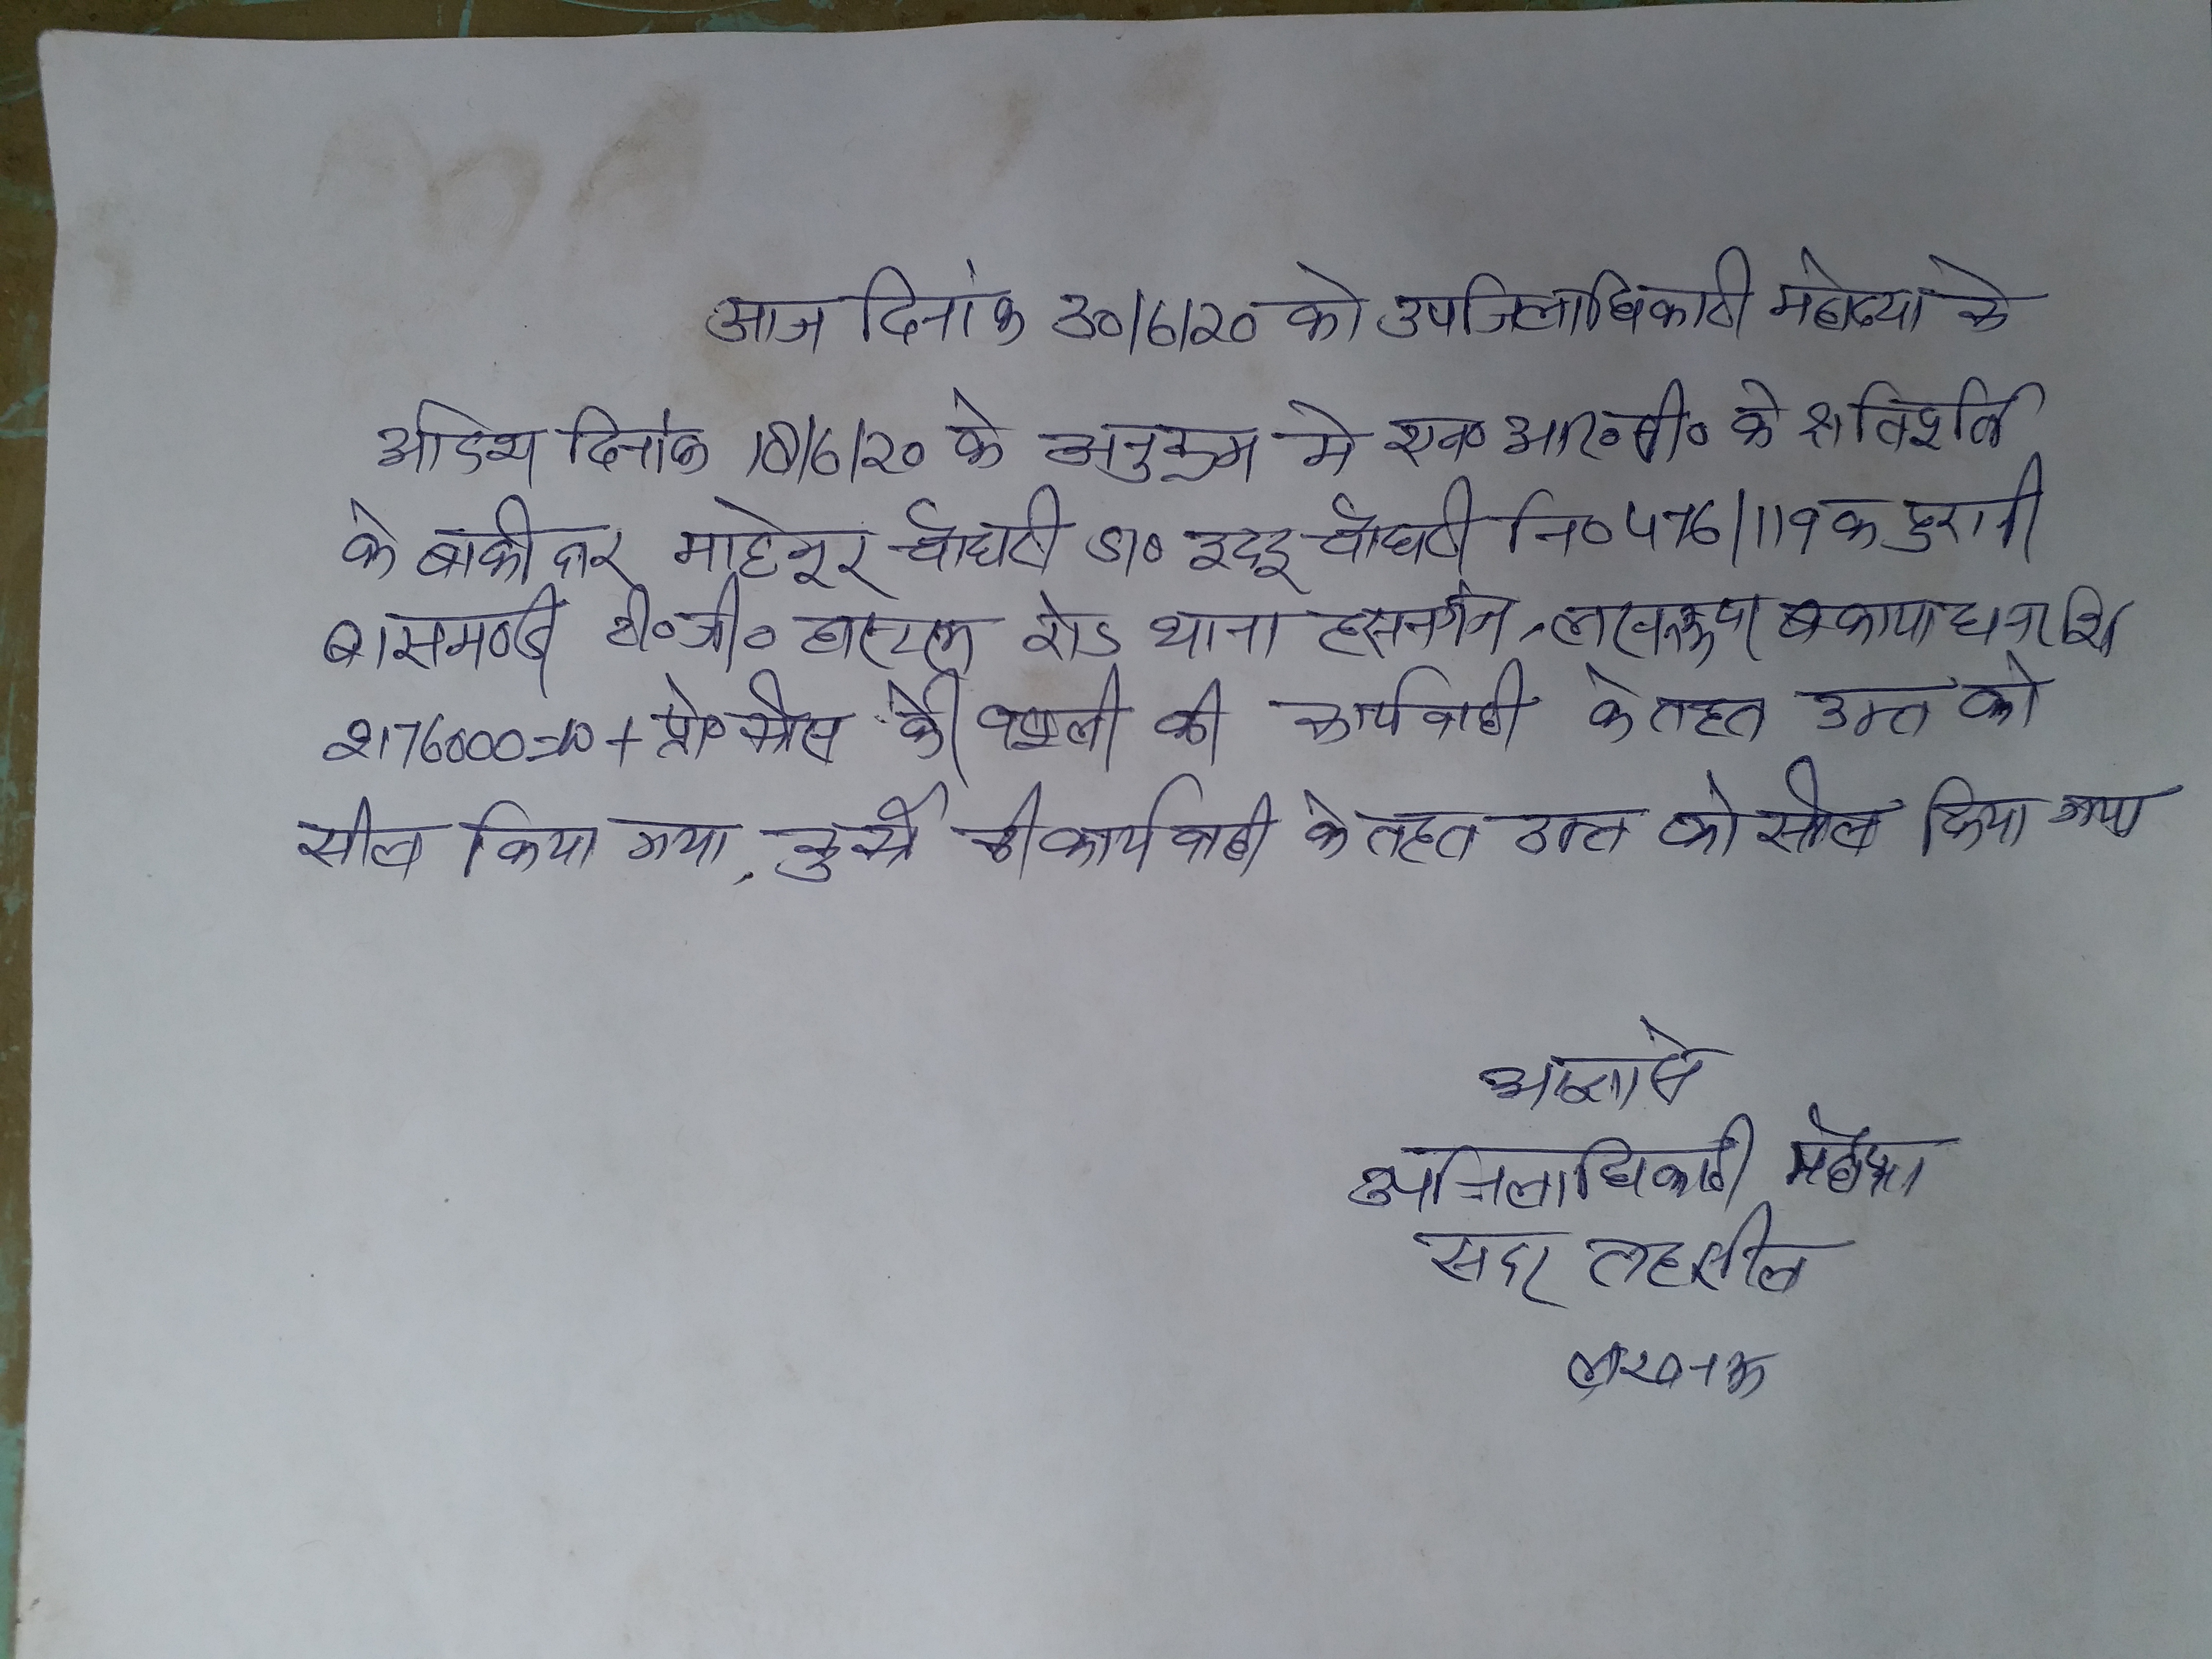 आज दिनांक 30/6/20 को उपजिलाधिकारी महोदया के
आदेश दिनांक 18/6/20 के अनुक्रम मे एन० आर०सी० के क्षतिपूर्ति
के बाकीदार माहेनूर चौधरी नि० 476/119 क पुरानी
बासमण्डी टी०जी० हास्टल रोड थाना हसनगंज, लखनऊ पर बकाया धनराशि
2176000=00 + प्रो० फीस की वसूली की कार्यवाही के तहत उक्त को
सील किया गया, कुर्की की कार्यवाही के तहत उक्त को सील किया गया
आज्ञा से
उपजिलाधिकारी महोदया
सदर तहसील
लखनऊ